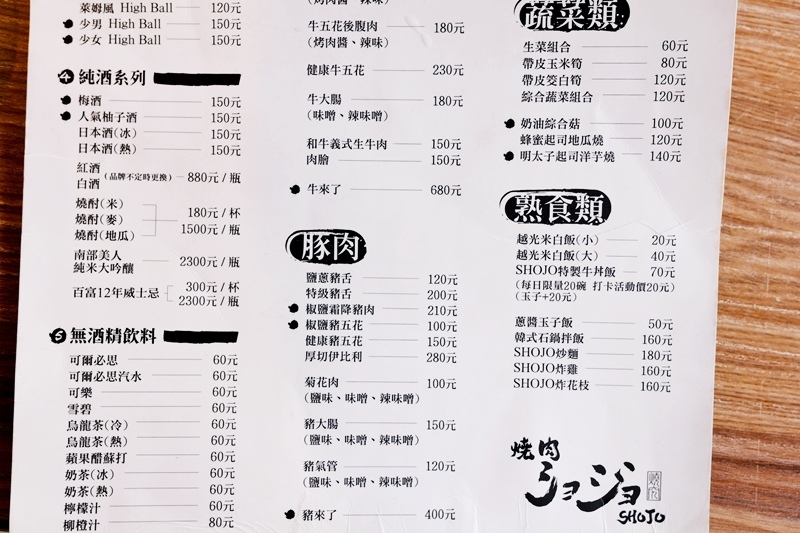 萊姆風 High Ball 120元
少男 High Ball 150元
少女 High Ball 150元
4 純酒系列
梅酒 150元
人氣柚子酒 150元
日本酒(冰) 150元
日本酒(熱) 150元
紅酒
白酒
(品牌不定時更換) 880元/瓶
燒酎(米)
燒酎(麥)
燒酎(地瓜)
180元/杯
1500元/瓶
南部美人
純米大吟釀
2300元/瓶
百富12年威士忌
300元/杯
2300元/瓶
5 無酒精飲料
可爾必思 60元
可爾必思汽水 60元
可樂 60元
雪碧 60元
烏龍茶(冷) 60元
烏龍茶(熱) 60元
蘋果醋蘇打 60元
奶茶(冰) 60元
奶茶(熱) 60元
檸檬汁 60元
柳橙汁 80元
(烤肉醬、辣味)
牛五花後腹肉 180元
(烤肉醬、辣味)
健康牛五花 230元
牛大腸 180元
(味噌、辣味噌)
和牛義式生牛肉 150元
肉膾 150元
牛來了 680元
豚肉
鹽蔥豬舌 120元
特級豬舌 200元
椒鹽霜降豬肉 210元
椒鹽豬五花 100元
健康豬五花 150元
厚切伊比利 280元
菊花肉 100元
(鹽味、味噌、辣味噌)
豬大腸 150元
(鹽味、味噌、辣味噌)
豬氣管 120元
(鹽味、味噌、辣味噌)
豬來了 400元
蔬菜類
生菜組合 60元
帶皮玉米筍 80元
帶皮筊白筍 120元
綜合蔬菜組合 120元
奶油綜合菇 100元
蜂蜜起司地瓜燒 120元
明太子起司洋芋燒 140元
熟食類
越光米白飯(小) 20元
越光米白飯(大) 40元
SHOJO特製牛丼飯 70元
(每日限量20碗 打卡活動價20元)
(玉子+20元)
蔥醬玉子飯 50元
韓式石鍋拌飯 160元
SHOJO炒麵 180元
SHOJO炸雞 160元
SHOJO炸花枝 160元
燒肉
ショジョ
SHOJO